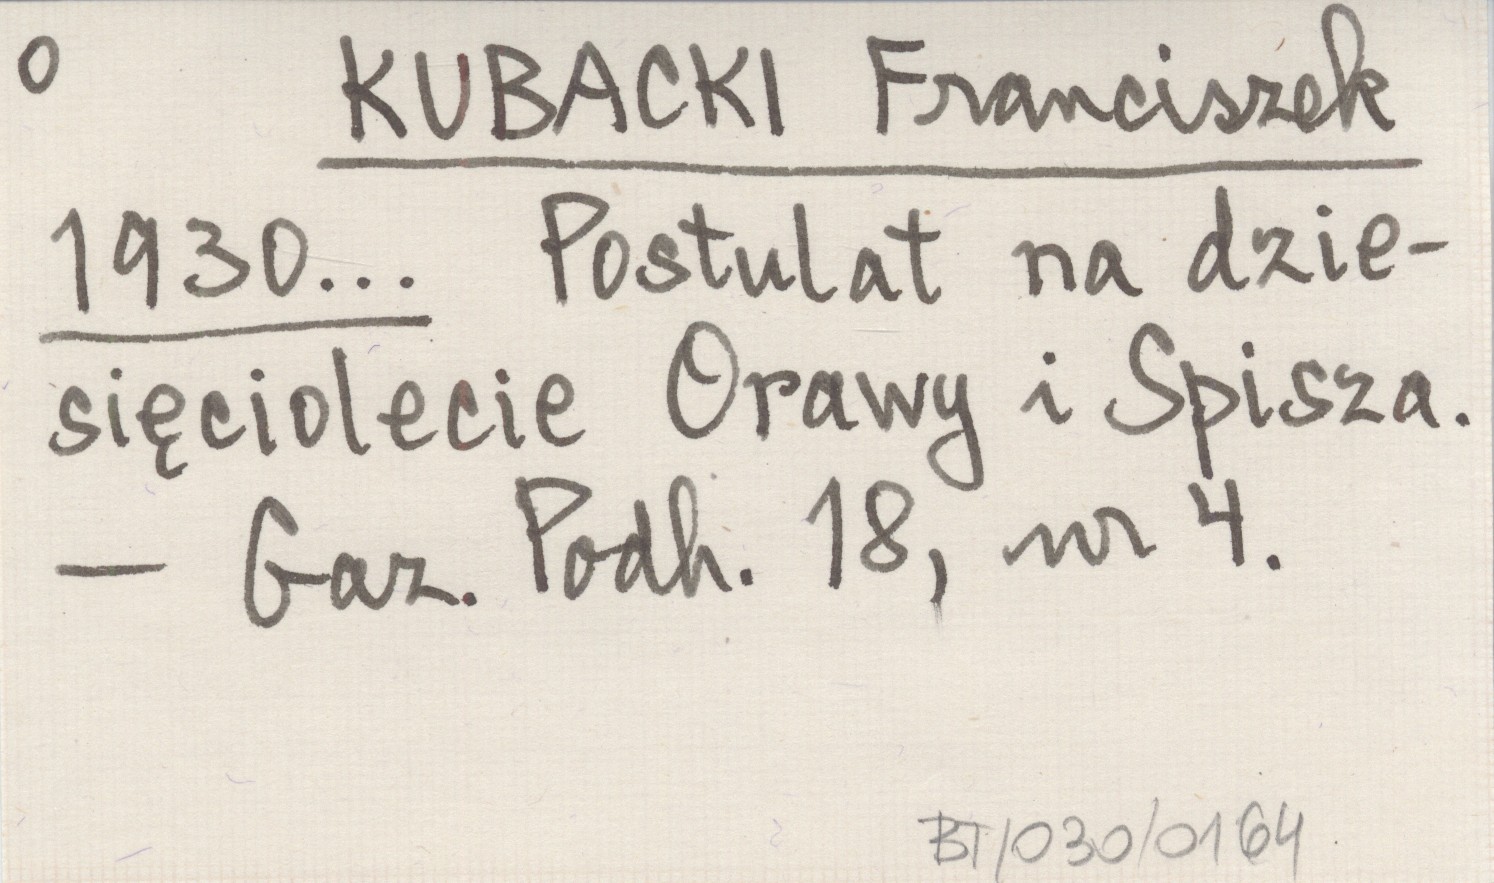 o KUBACKI Franciszek
1930... Postulat na dzie-
sięciolecie Orawy i Spisza.
— Gaz. Podh. 18, nr 4.
BT/030/0164